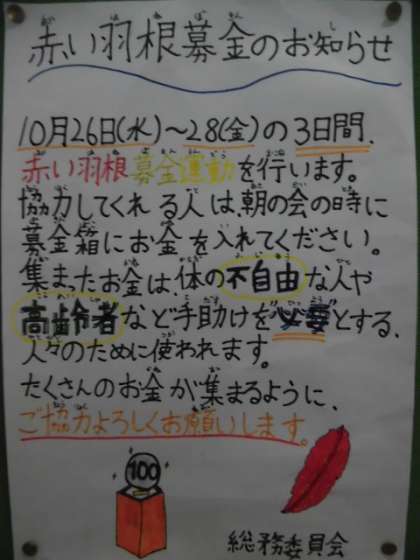 赤い羽根募金のお知らせ
10月26日(水)～28(金)の3日間、
赤い羽根募金運動を行います。
協力してくれる人は、朝の会の時に
募金箱にお金を入れてください。
集まったお金は、体の不自由な人や
高齢者など手助けを"必要"とする、
人々のために使われます。
たくさんのお金が集まるように、
ご協力よろしくお願いします。
100
総務委員会